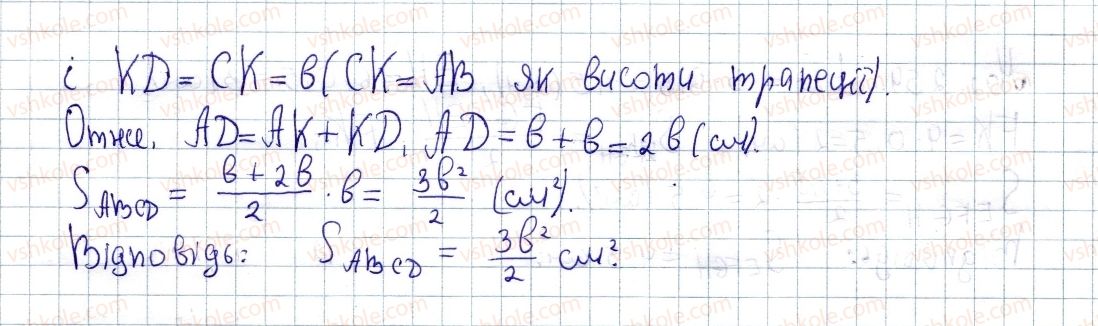 і KD = CK = в (CK = AB як висоти трапеції).
Отже, AD = AK + KD, AD = в + в = 2в (см).
S_ABCD = (в + 2в)/2 · в = 3в²/2 (см²).
Відповідь: S_ABCD = 3в²/2 см².